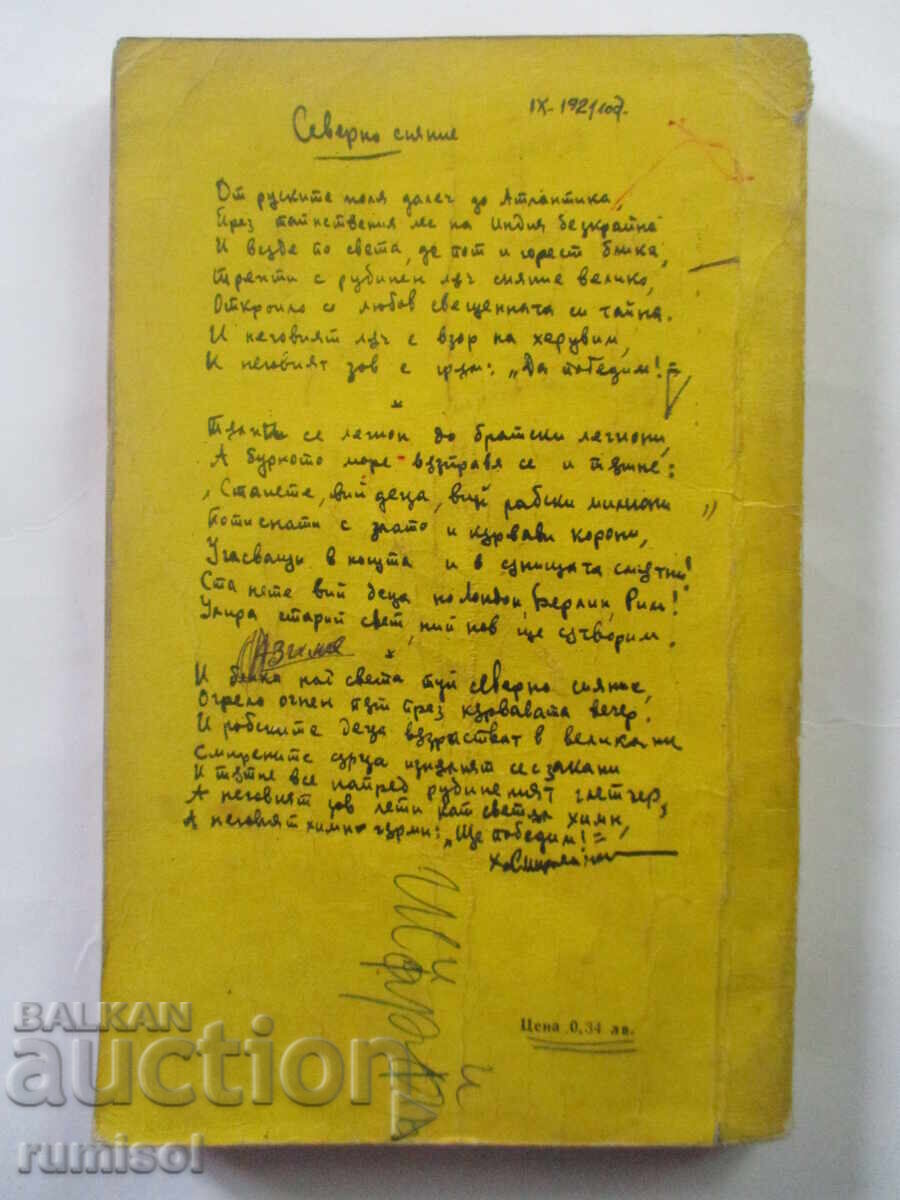 IX-1921 год.
Северно сияние
От руските поля далеч до Атлантика,
През тайнствения лес на Индия безкрайна
И възве по света, де пот и горест блика,
Трепти с рубинен луч сияние велико,
Открило с любов свещенната си тайна.
И неговият луч е взор на херувим,
И неговият зов е гръм: „Да победим!"
*
Тълпи се легион до братски легиони,
А бурното море възправя се и тътне:
„Станете, вий деца, вий рабски милиони
Потиснати с злато и кървави корони,
Угасващи в нощта и в сднищата смътни!
Станете вий деца на Лондон, Берлин, Рим!
Умира старий свет, ний нов ще сътворим.
*
И блика над света туй северно сияние,
Огрело огнен път през кървавата вечер.
И робските деца възрастват в великани
Смирените сърца изпълнят се с закани
И тътне все напред рубиненият глетчер,
А неговият зов лети кат светъл химн,
А неговият химн гърми: „Ще победим!"
Хр Смирненски
Цена 0,34 лв.
BALKAN
auction
rumisol